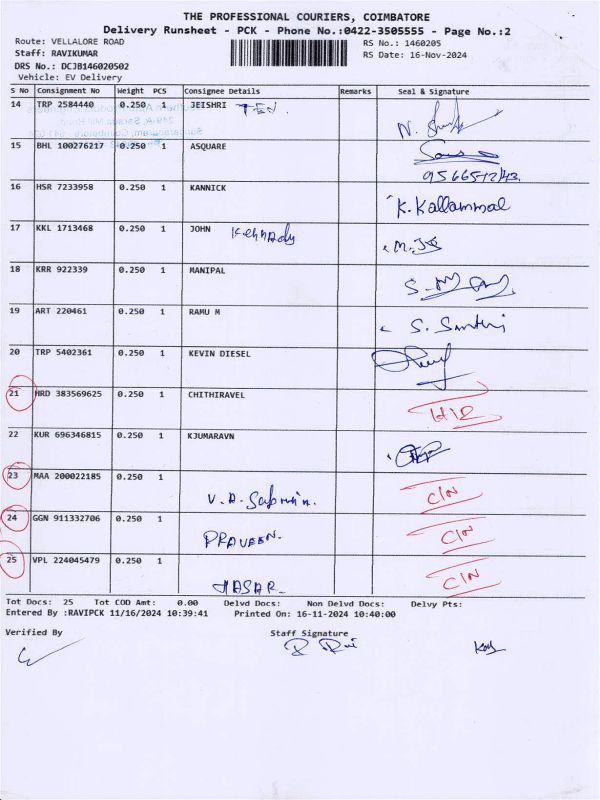 THE PROFESSIONAL COURIERS, COIMBATORE
Delivery Runsheet - PCK - Phone No.:0422-3505555 - Page No.:2
Route: VELLALORE ROAD
Staff: RAVIKUMAR
RS No.: 1460205
DRS No.: DCJB146020502
RS Date: 16-Nov-2024
Vehicle: EV Delivery
S No Consignment No Weight PCS Consignee Details Remarks Seal & Signature
14 TRP 2584440 0.250 1 JEISHRI TEN.
15 BHL 100276217 0.250 1 ASQUARE
16 HSR 7233958 0.250 1 KANNICK K. Kallammal
17 KKL 1713468 0.250 1 JOHN Kennady
18 KRR 922339 0.250 1 MANIPAL
19 ART 220461 0.250 1 RAMU M S. Santhi
20 TRP 5402361 0.250 1 KEVIN DIESEL
21 HRD 383569625 0.250 1 CHITHIRAVEL
22 KUR 696346815 0.250 1 KJUMARAVN
23 MAA 200022185 0.250 1 C/N
24 GGN 911332706 0.250 1 PRAVEEN. C/N
25 VPL 224045479 0.250 1 C/N
Tot Docs: 25 Tot COD Amt: 0.00 Delvd Docs: Non Delvd Docs: Delvy Pts:
Entered By :RAVIPCK 11/16/2024 10:39:41 Printed On: 16-11-2024 10:40:00
Verified By Staff Signature